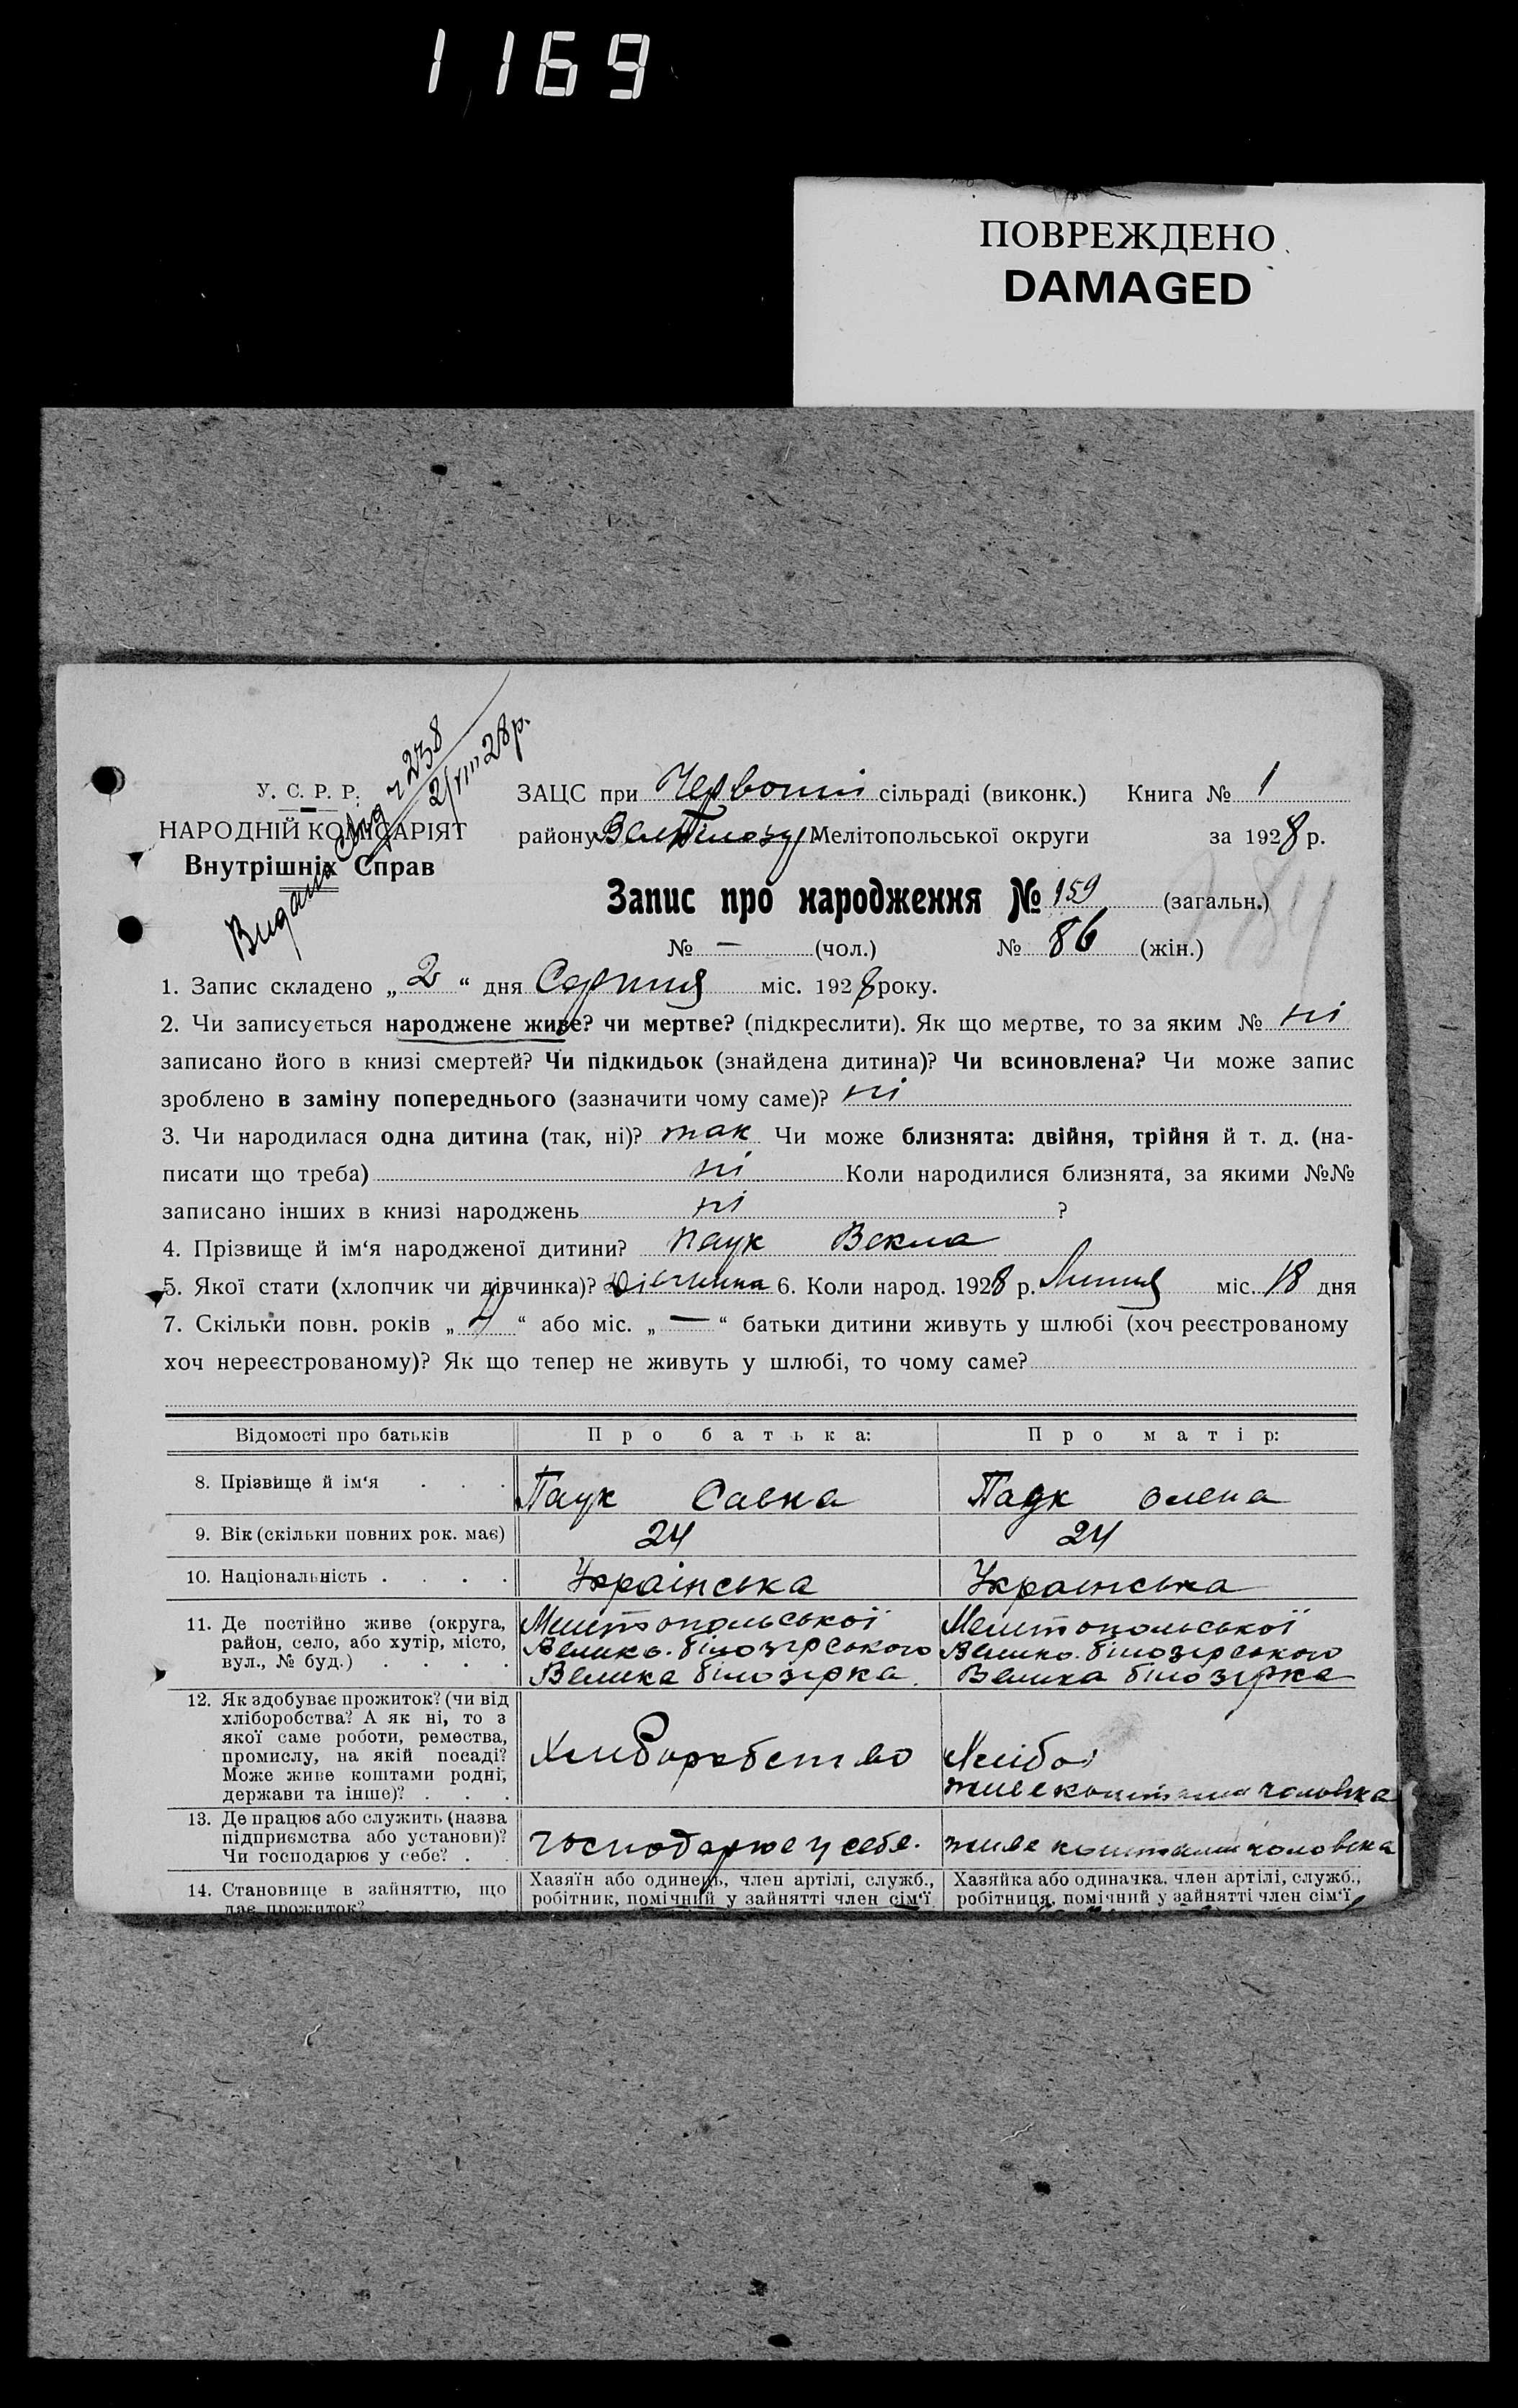 1169
ПОВРЕЖДЕНО
DAMAGED
Видано свид ч 238
2/VIII 28 р.
У. С. Р. Р.
НАРОДНІЙ КОМІСАРІЯТ
Внутрішніх Справ
ЗАЦС при Червоній сільраді (виконк.) Книга № 1
району Вел Білозур Мелітопольської округи за 1928 р.
Запис про народження № 159 (загальн.)
№ — (чол.) № 86 (жін.)
1. Запис складено „ 2 “ дня Серпня міс. 1928 року.
2. Чи записується народжене живе? чи мертве? (підкреслити). Як що мертве, то за яким № ні
записано його в книзі смертей? Чи підкидьок (знайдена дитина)? Чи всиновлена? Чи може запис
зроблено в заміну попереднього (зазначити чому саме)? ні
3. Чи народилася одна дитина (так, ні)? так Чи може близнята: двійня, трійня й т. д. (на-
писати що треба) ні Коли народилися близнята, за якими №№
записано інших в книзі народжень ні ?
4. Прізвище й ім‘я народженої дитини? Паук Векла
5. Якої стати (хлопчик чи дівчинка)? Дівчинка 6. Коли народ. 1928 р. Липня міс. 18 дня
7. Скільки повн. років „ “ або міс. „ — “ батьки дитини живуть у шлюбі (хоч реєстрованому
хоч нереєстрованому)? Як що тепер не живуть у шлюбі, то чому саме?
Відомості про батьків Про батька: Про матір:
8. Прізвище й ім‘я . . . Паук Савка Паук Олена
9. Вік (скільки повних рок. має) 24 24
10. Національність . . . . Українська Українська
11. Де постійно живе (округа, Мелітопольської Мелітопольської
район, село, або хутір, місто, Велико-білозірського Велико-білозірського
вул., № буд.) . . . . Велика білозірка Велика білозірка
12. Як здобуває прожиток? (чи від
хліборобства? А як ні, то з
якої саме роботи, ремества,
промислу, на якій посаді? Хлиборобство Хлібо
Може живе коштами родні,
держави та інше)? . . . живе коштами чоловіка
13. Де працює або служить (назва
підприємства або установи)? господарює у себе. живе коштами чоловіка
Чи господарює у себе? . .
14. Становище в зайняттю, що Хазяїн або одинець, член артілі, служб., Хазяйка або одиначка, член артілі, служб.,
дає прожиток? робітник, помічний у зайнятті член сім‘ї робітниця, помічний у зайнятті член сім‘ї